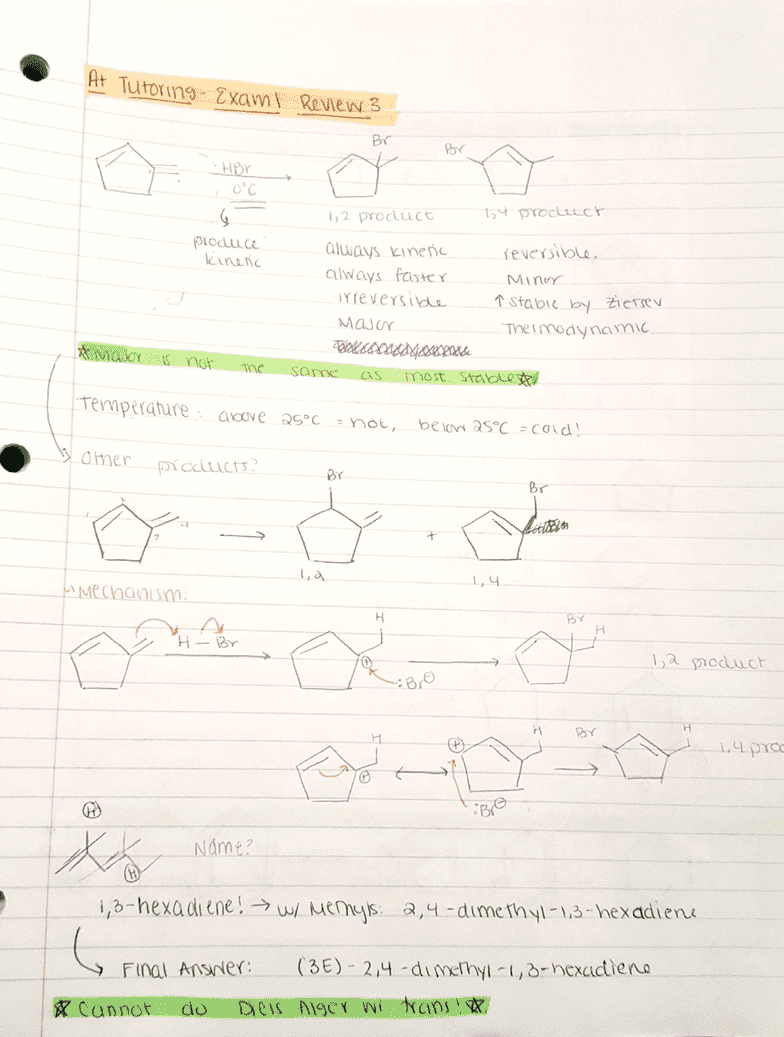 At Tutoring - Exam 1 Review 3
Br
Br
HBr
0°C
1,2 product
1,4 product
produce kinetic
always kinetic
reversible.
always faster
Minor
irreversible
↑ stable by Zietsev
Major
Thermodynamic
☆Major is not the same as most stable☆
Temperature: above 25°C = hot, below 25°C = cold!
other products?
Br
Br
+
1,2
1,4
Mechanism:
H
Br
H
H — Br
⊕
:Br⊖
1,2 product
H
⊕
⊕
H
Br
H
:Br⊖
1,4 pro
H
H
Name?
1,3-hexadiene! → w/ Methyls: 2,4-dimethyl-1,3-hexadiene
Final Answer: (3E)-2,4-dimethyl-1,3-hexadiene
☆Cannot do Diels Alger w/ trans!☆